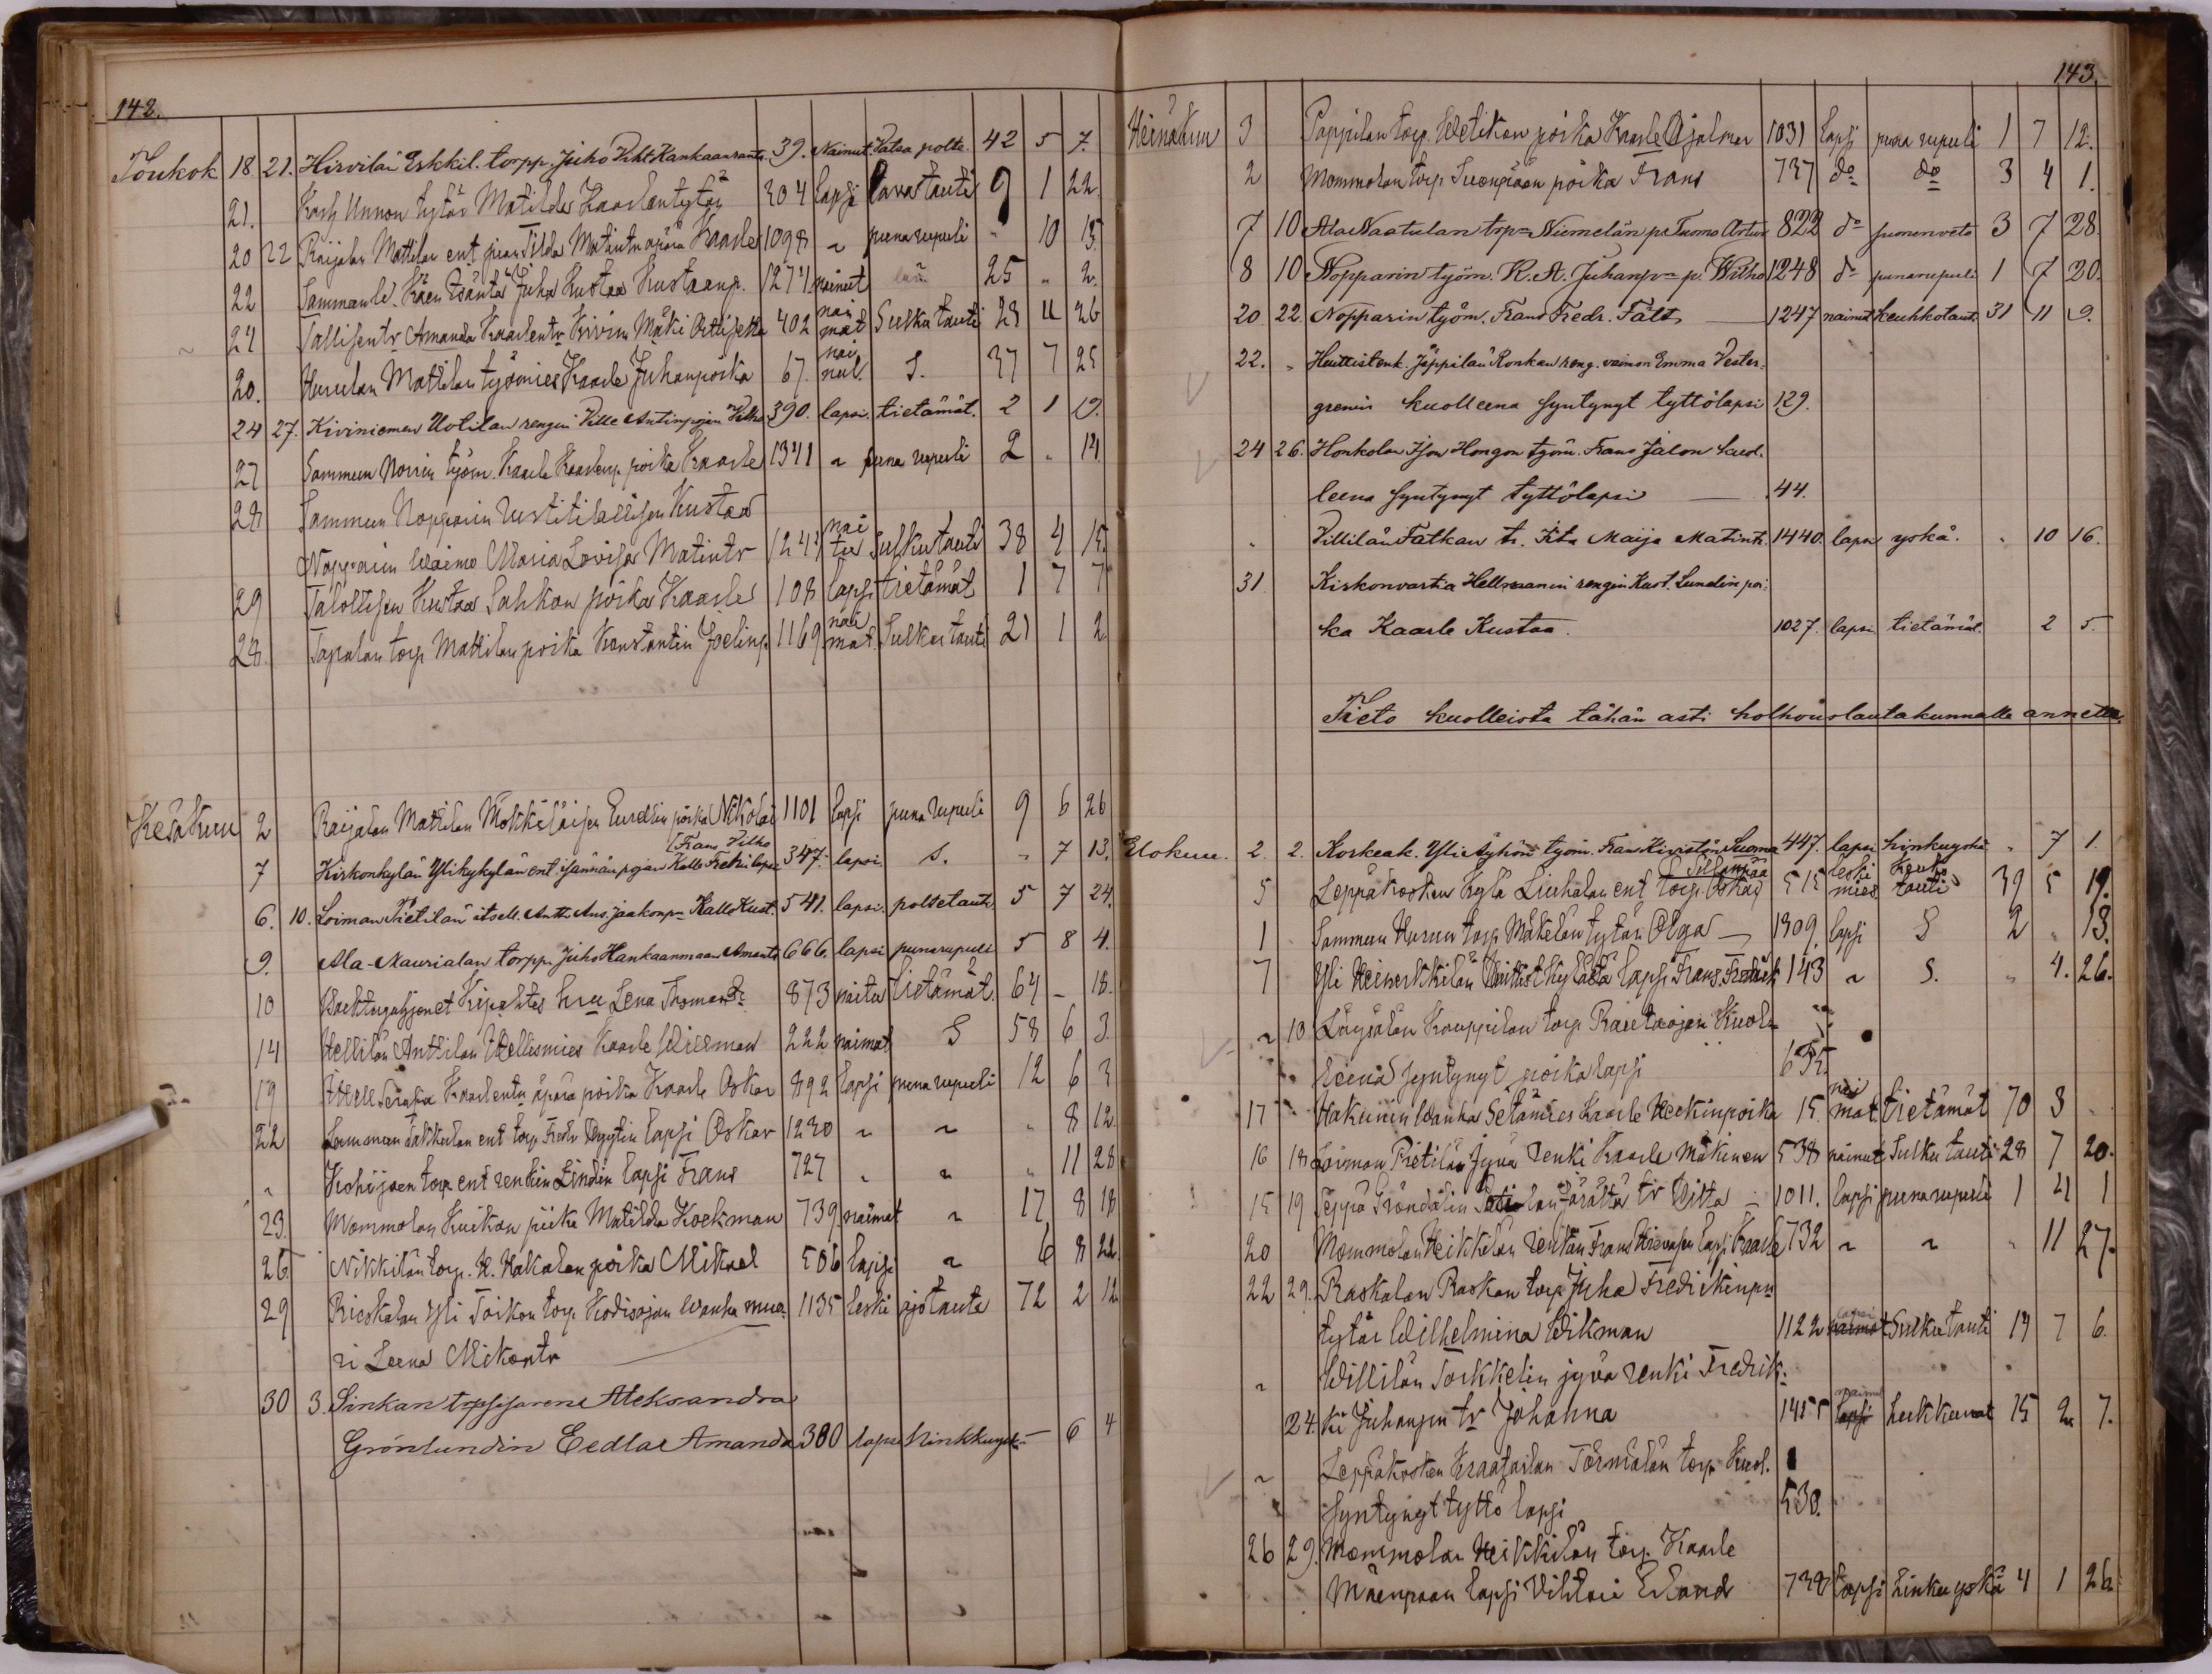 142.
Toukok 18. 21. Hirvilän Eskkil. torpp. Juho Viht. Kankaanranta. 39. Nainut. Vatsa polte. 42 5 7.
21. Unnon tytär Matilda Kaarlentytär 304 lapsi lavatauti 9 1 22.
20 22 Raijalan Mattilan ent. piian Tilda Matintr äpärä Kaarle 1098 " punarupuli " 10 15.
22 Sammunld. Isäntä Juha Kustaa Kustaanp. 1271. nainut 25 " 2.
24 Tallisentr Amanda Kaarlentr Kivim Mäki 402 nai mat Sulku tauti 23 11 26
20. Hurulan Mattilan työmies Kaarle Juhanpoika 67. nai nut. S. 37 7 25
24 27. Kiviniemen Uotilan rengin Ville Antinpojan Vilho 390. lapsi. tietämät. 2 1 19.
27 Sammun Norrin työm. Kaarle Kaarlenp. poika Kaarle 1341 " puna rupuli 2 " 14.
28 Sammun Nopparin Kustaa
Nopparin waimo Maria Lovisa Matintr 1242 nai tu Sulkutauti 38 4 15.
29 Talollisen Kustaa Sahkon poika Kaarle 108 lapsi tietämät 1 7 7
28. Tapalan torp. Mattilan poika Konstantin Joelinp. 1169. nai mat. Sulku tauti 21 1 2
Kesäkuu 2 Raijalan Mattilan Mökkiläisen Eurellin poika Nikolai 1101 lapsi puna rupuli 9 6 26
[Frans Vilho
7 Kirkonkylän Ylikykylän ent. isännän pojan Kalle Fredrin lapsi 347. lapsi. S. " 7 13.
6. 10. Loiman Pietilän itsell. Antt. Aus. Jaakonpn Kalle Kust. 541. lapsi. polsetauti 5 7 24.
9. Ala-Maurialan torpp. Juho Hankaanmaan Amanta 666. lapsi punarupuli 5 8 4.
10 Lena Tomantr. 873 naitu tietämät. 64 - 18.
14 Hellilän Anttilan Wellismies Kaarle Willman 222 naimat S 58 6 3.
19 Itsell. Serafia Kaarlentr äpärä poika Kaarle Oskar 892 lapsi puna rupuli 12 6 3
22 Lammun Takkulan ent. torp. Fredr lapsi Oskar 1230 " " " 8 12.
" Kohijoen torp. ent renkin Lindin lapsi Frans 727 " " " 11 28
23. Mommolan Kuikan piika Matilda Koekman 739. naimat " 17 8 18
26. Nikkilän torp. K. Hakalan poika Mikael 506 lapsi " 6 8 22.
29 Rieskalan Yli Toikon torp. Kodisojan Wanha muo 1135 leski ajotauti 72 2 12.
ri Leena Mikontr
30 3. Sinkan Aleksandra
Grönlundin Eedla Amanda 380 lapsi hinkkuyskä - 6 4
143.
Heinäkuu 3 Pappilan torp. Wetikon poika Kaarle Hjalmar 1031 lapsi puna rupuli 1 7 12.
2 Mommolan torp. Suonpään poika Frans 737 do do 3 4 1.
7 10 Ala Naatulan trpn Niemelän pa Tuomo Artur 822 do suonenveto 3 7 28.
8 10 Nopparin työm. K. A. Juhanpn p. Wilho 1248 do punarupuli 1 7 20.
20. 22. Nopparin työm. Frans Fredr. Fält 1247 nainut Keuhkotaut. 31 11 9.
22. " Huittistenk. Jäppilän Ronkan reng. vaimon Emma Vester-
grenin kuolleena syntynyt tyttölapsi 129.
24 26. Honkolan Ison Hongon työm. Frans Jalon kuol.
leena syntynyt tyttölapsi 44.
" Villilän Fatkan tr. Ita Maija Matintr. 1440. lapsi yskä. " 10 16.
31. Kirkonvartia Hellmanin rengin Kust. Lundin poi-
ka Kaarle Kustaa. 1027. lapsi. tietämät. 2 5.
Tieto kuolleista tähän asti holhouslautakunnalle annettu.
Elokuu. 2. 2. Korkeak. Yli Äyhön työm. Frans Kivistön Suoma 447. lapsi hinkuyskä " 7 1.
Sillanpää
5 Leppäkosken Kylä Liuhalan ent torp. Oskar 515 leski mies Keuhko tauti 39 5 19.
1 Sammun Hurun torp. Mäkelän tytär Olga 1309. lapsi S 2 " 13.
7 Yli Heinerkkilän lapsi Frans Fredrik 143 " S. " 4. 26.
" 10 Löysälän Kauppilan torp. Rasetnojan Kuol-
leena syntynyt poika lapsi 655.
17 Hakuinin Wanha Setämies Kaarle Heikinpoika 15. nai mat. tietämät 70 3 "
16 18 Loiman Pietilän Jyvä renki Kaarle Mäkinen 538 nainut Sulku tauti 28 7 20.
15 19 Seppä Gröndalin tr Wilta 1011. lapsi puna rupuli 1 4 1
20 Mommolan Heikkilän renkin Frans Hirvosen lapsi Kaarle 732 " " " 11 27.
22 29. Raskalan Raskan torp. Juha Fredrikinpn
tytär Wilhelmina Wikman 1122 lapsi naimat Sulku tauti 14 7 6.
" Willilän Torkkelin jyvä renki Fredrik-
24. ki Juhanpn tr Johanna 1455 naimat lapsi 15 2 7.
" Leppäkosken Kraatarlan Törmälän torp. Kuol.
syntynyt tyttö lapsi 530.
26 29. Mommolan Heikkilän torp. Kaarle
Mäenpään lapsi Vihtori Erland 738 lapsi hinku yskä 4 1 26.